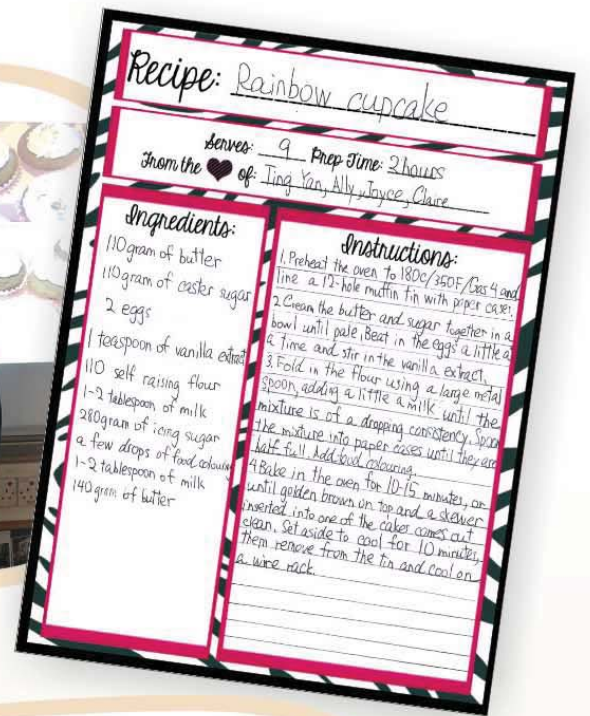 Recipe: Rainbow cupcake
Serves: 9 Prep Time: 2hours
From the of: Ting Yan, Ally, Joyce, Claire
Ingredients:
110gram of butter
110gram of caster sugar
2 eggs
1 teaspoon of vanilla extract
110 self raising flour
1-2 tablespoon of milk
280gram of icing sugar
a few drops of food colouring
1-2 tablespoon of milk
140gram of butter
Instructions:
1. Preheat the oven to 180c/350F/Gas 4 and
line a 12-hole muffin tin with paper cases.
2. Cream the butter and sugar together in a
bowl until pale. Beat in the eggs a little a
a time and stir in the vanilla extract.
3. Fold in the flour using a large metal
spoon, adding a little a milk until the
mixture is of a dropping consistency. Spoon
the mixture into paper cases until they are
half full. Add food colouring.
4 Bake in the oven for 10-15 minutes, or
until golden brown on top and a skewer
inserted into one of the cakes comes out
clean. Set aside to cool for 10 minutes,
them remove from the tin and cool on
a wire rack.